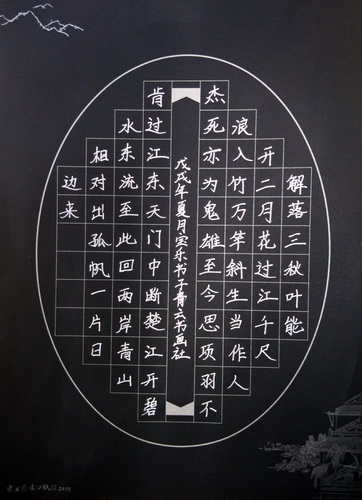 解落三秋叶能
开二月花过江千尺
浪入竹万竿斜生当作人
杰死亦为鬼雄至今思项羽不
肯过江东天门中断楚江开碧
水东流至此回两岸青山
相对出孤帆一片日
边来
戊戌年夏月宝乐书于青云书画社